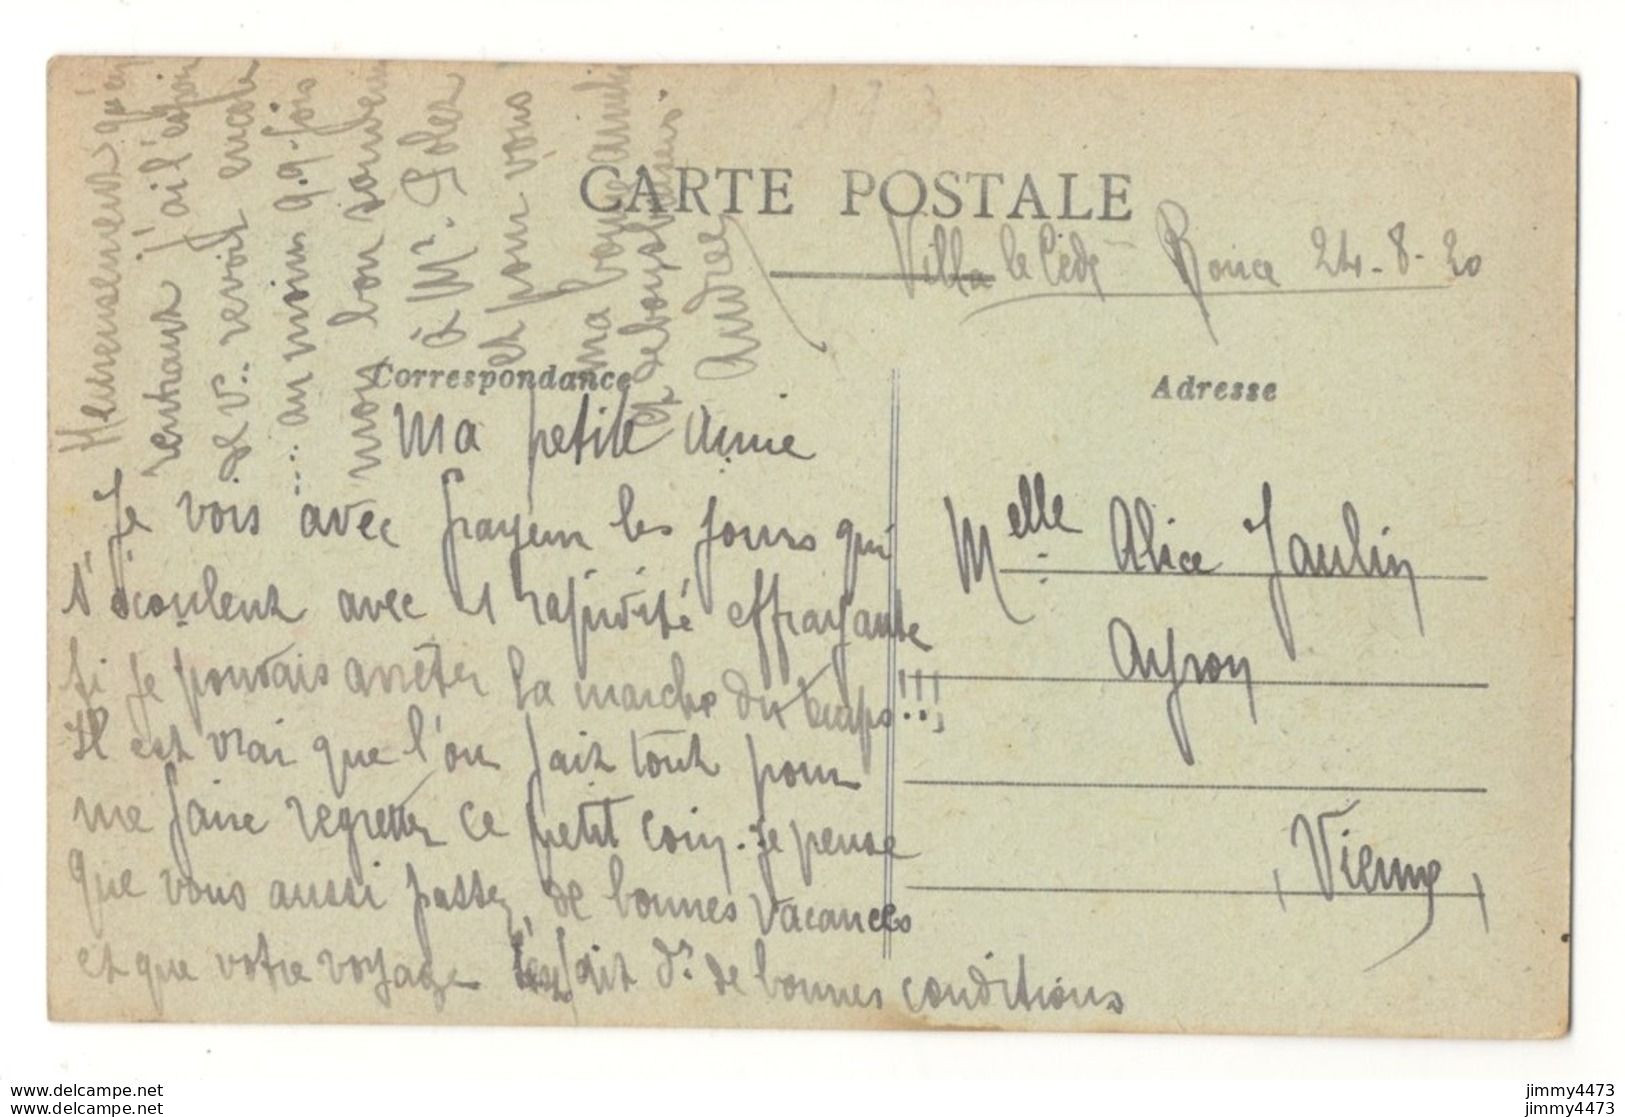 CARTE POSTALE
Villa le Cède Ronce 24-8-20
Correspondance
Adresse
Ma petite amie
Je vois avec frayeur les jours qui
s'écoulent avec 1 rapidité effrayante
si je pouvais arrêter la marche du temps!!!
Il est vrai que l'on fait tout pour
me faire regretter ce petit coin. Je pense
que vous aussi passez de bonnes vacances
et que votre voyage s'est fait ds de bonnes conditions
Heureusement qu'en
rentrant j'ai l'espoir
de v. revoir encore
au moins q.q. fois
mon bon souvenir
à Mr.
et pour vous
ma bonne amitié
et de bons baisers.
Andrée
Melle Alice Jaulin
Ayron
(Vienne)
www.delcampe.net
www.delcampe.net
jimmy4473
jimmy4473